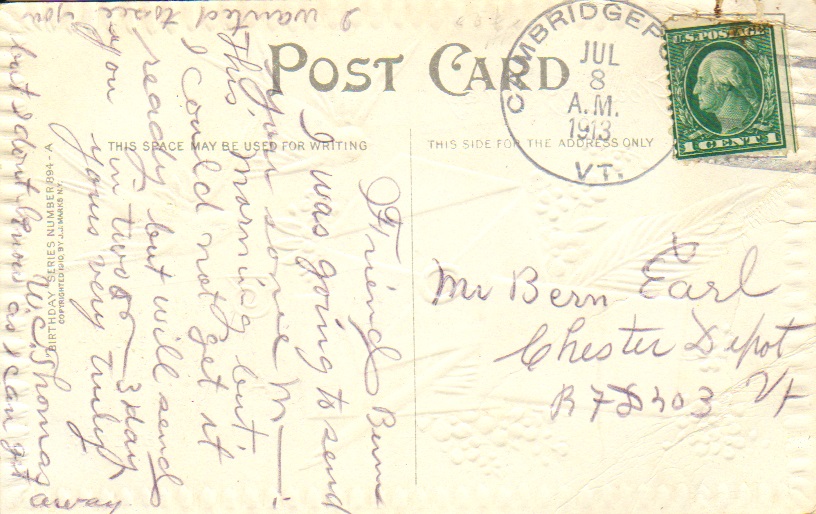 POST CARD
THIS SPACE MAY BE USED FOR WRITING
THIS SIDE FOR THE ADDRESS ONLY
CAMBRIDGEPO
JUL
8
A.M.
1913
VT.
U.S. POSTAGE
1 CENT 1
Mr Bern Earl
Chester Depot
R F D no 3 Vt
Friend Bern
I was going to send
your some M
this morning but
I could not get it
ready but will send
you in two or 3 day
yours very truly
W. C. Thomas
I wanted to see you
but I dont know as I can get
away
BIRTHDAY SERIES NUMBER 894-A
COPYRIGHTED 1910, BY J.J. MARKS N.Y.